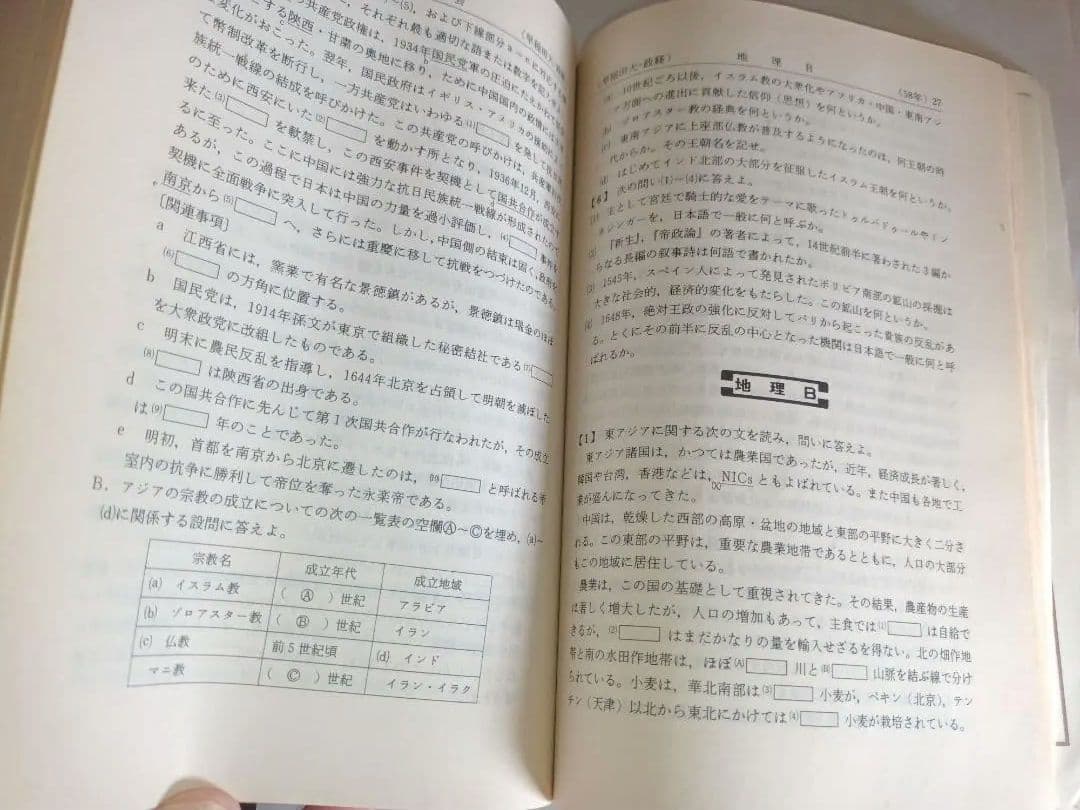 の共産党政権は，1934年国民党軍の圧迫に
する陝西・甘粛の奥地に移り，ために中国国内の政情には
変化がおこった。翌年，国民政府はイギリス・アメリカの援助に
て幣制改革を断行し，一方共産党はいわゆる(1)　　を発して抗日民
族統一戦線の結成を呼びかけた。この共産党の呼びかけは，共産軍
のために西安にいた(2)　　を動かす所となり，1936年12月，西安に
来た(3)　　を軟禁し，この西安事件を契機として国共合作が成立す
るに至った。ここに中国には強力な抗日民族統一戦線が形成されたので
あるが，この過程で日本は中国の力を過小評価し，(4)　　事件を
契機に全面戦争に突入して行った。しかし，中国側の結束は固く，政府を
南京から(5)　　へ，さらには重慶に移して抗戦をつづけたのである。
[関連事項]
a　江西省には，窯業で有名な景徳鎮があるが，景徳鎮は瑞金のほぼ
(6)　　の方角に位置する。
b　国民党は，1914年孫文が東京で組織した秘密結社である(7)
を大衆政党に改組したものである。
c　明末に農民反乱を指導し，1644年北京を占領して明朝を滅ぼした
(8)　　は陝西省の出身である。
d　この国共合作に先んじて第1次国共合作が行なわれたが，その成立
は(9)　　年のことであった。
e　明初，首都を南京から北京に遷したのは，(10)　　と呼ばれる帝
室内の抗争に勝利して帝位を奪った永楽帝である。
B．アジアの宗教の成立についての次の一覧表の空欄Ⓐ～Ⓒを埋め，(a)～
(d)に関係する設問に答えよ。
宗教名　成立年代　成立地域
(a)　イスラム教　（　Ⓐ　）世紀　アラビア
(b)　ゾロアスター教　（　Ⓑ　）世紀　イラン
(c)　仏教　前5世紀頃　(d)　インド
マニ教　（　Ⓒ　）世紀　イラン・イラク
（早稲田大－政経）　地　理　B　（58年）27
(a)　10世紀ごろ以後，イスラム教の大衆化やアフリカ・中国・東南アジ
ア方面への進出に貢献した信仰（思想）を何というか。
(b)　ゾロアスター教の経典を何というか。
(c)　東南アジアに上座部仏教が普及するようになったのは，何王朝の時
代からか。その王朝名を記せ。
(d)　はじめてインド北部の大部分を征服したイスラム王朝を何というか。
【6】　次の問い(1)～(4)に答えよ。
(1)　主として宮廷で騎士的な愛をテーマに歌ったトゥルバドゥールやミン
ネジンガーを，日本語で一般に何と呼ぶか。
(2)　『新生』，『帝政論』の著者によって，14世紀前半に著わされた3編か
らなる長編の叙事詩は何語で書かれたか。
(3)　1545年，スペイン人によって発見されたボリビア南部の鉱山の採掘は
大きな社会的，経済的変化をもたらした。この鉱山を何というか。
(4)　1648年，絶対王政の強化に反対してパリから起こった貴族の反乱があ
る。とくにその前半に反乱の中心となった機関は日本語で一般に何と呼
ばれるか。
地　理　B
【1】　東アジアに関する次の文を読み，問いに答えよ。
東アジア諸国は，かつては農業国であったが，近年，経済成長が著しく，
韓国や台湾，香港などは，NICsともよばれている。また中国も各地で工
業が盛んになってきた。
中国は，乾燥した西部の高原・盆地の地域と東部の平野に大きく二分さ
れる。この東部の平野は，重要な農業地帯であるとともに，人口の大部分
もこの地域に居住している。
農業は，この国の基礎として重視されてきた。その結果，農産物の生産
は著しく増大したが，人口の増加もあって，主食では(1)　　は自給で
きるが，(2)　　はまだかなりの量を輸入せざるを得ない。北の畑作地
帯と南の水田作地帯は，ほぼ(A)　　川と(B)　　山脈を結ぶ線で分け
られている。小麦は，華北南部は(3)　　小麦が，ペキン（北京），テン
チン（天津）以北から東北にかけては(4)　　小麦が栽培されている。